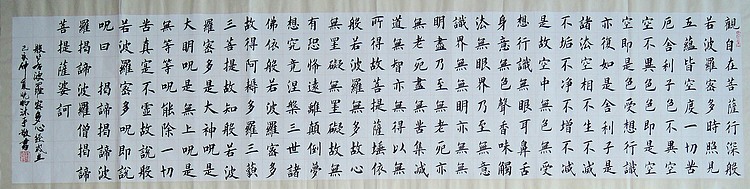 觀自在菩薩行深般
若波羅蜜多時照見
五蘊皆空度一切苦
厄舍利子色不異空
空不異色色即是空
空即是色受想行識
亦復如是舍利子是
諸法空相不生不滅
不垢不淨不增不減
是故空中無色無受
想行識無眼耳鼻舌
身意無色聲香味觸
法無眼界乃至無意
識界無無明亦無無
明盡乃至無老死亦
無老死盡無苦集滅
道無智亦無得以無
所得故菩提薩埵依
般若波羅蜜多故心
無罣礙無罣礙故無
有恐怖遠離顛倒夢
想究竟涅槃三世諸
佛依般若波羅蜜多
故得阿耨多羅三藐
三菩提故知般若波
羅蜜多是大神呪是
大明呪是無上呪是
無等等呪能除一切
苦真實不虛故說般
若波羅蜜多呪即說
呪曰 揭諦揭諦波
羅揭諦波羅僧揭諦
菩提薩婆訶
般若波羅蜜多心經